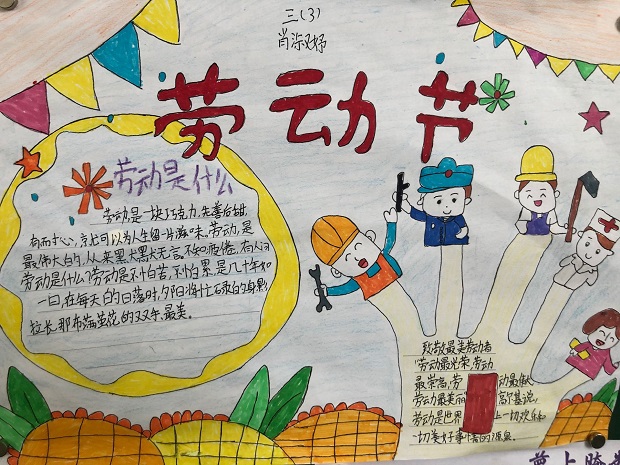 三(3)
肖柒妤
劳动节
劳动是什么
劳动是一块巧克力,先苦后甜,
有而于心,它也可以为人生留一味滋味。劳动,是
最伟大的,从来黑大黑大无言,不知疲倦,有人问
劳动是什么?劳动是不怕苦,不怕累,是几十年如
一日,在每天的日落时,夕阳将忙碌的身影
拉长,那布满茧花的双手,最美。
致敬最美劳动者
劳动最光荣,劳动
最崇高,劳 动最伟
劳动最美丽 高尔基说:
劳动是世界 上一切欢乐
一切美好事情的源泉。